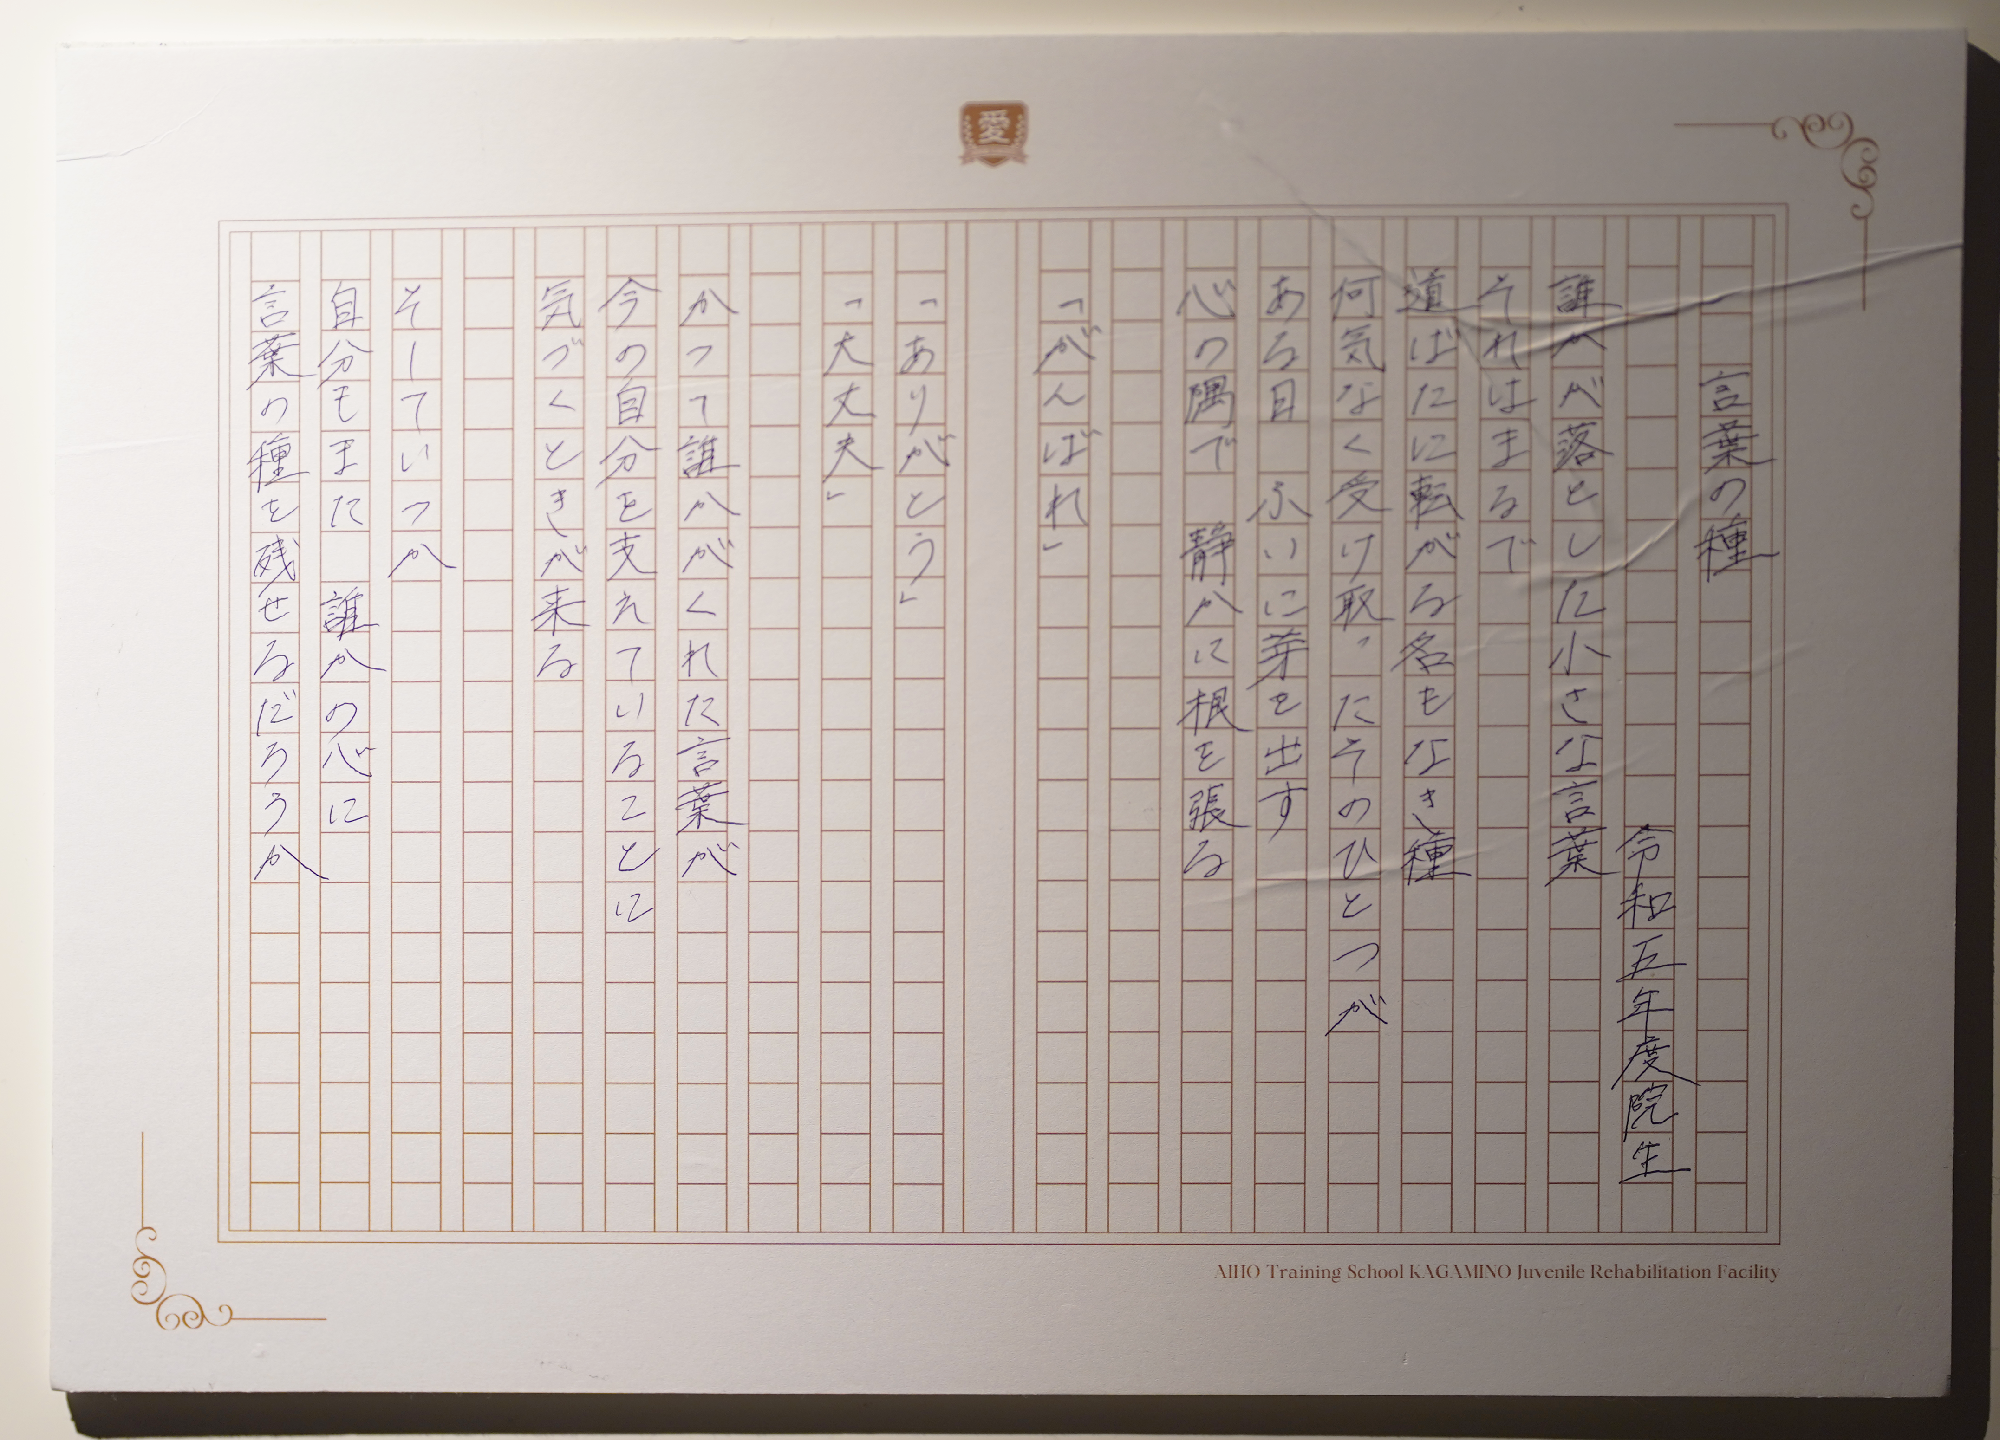 愛
言葉の種
令和五年度院生
誰かが落とした小さな言葉
それはまるで
道ばたに転がる名もなき種
何気なく受け取ったそのひとつが
ある日　ふいに芽を出す
心の隅で　静かに根を張る
「がんばれ」
「ありがとう」
「大丈夫」
かつて誰かがくれた言葉が
今の自分を支えていることに
気づくときが来る
そしていつか
自分もまた　誰かの心に
言葉の種を残せるだろうか
AIHO Training School KAGAMINO Juvenile Rehabilitation Facility